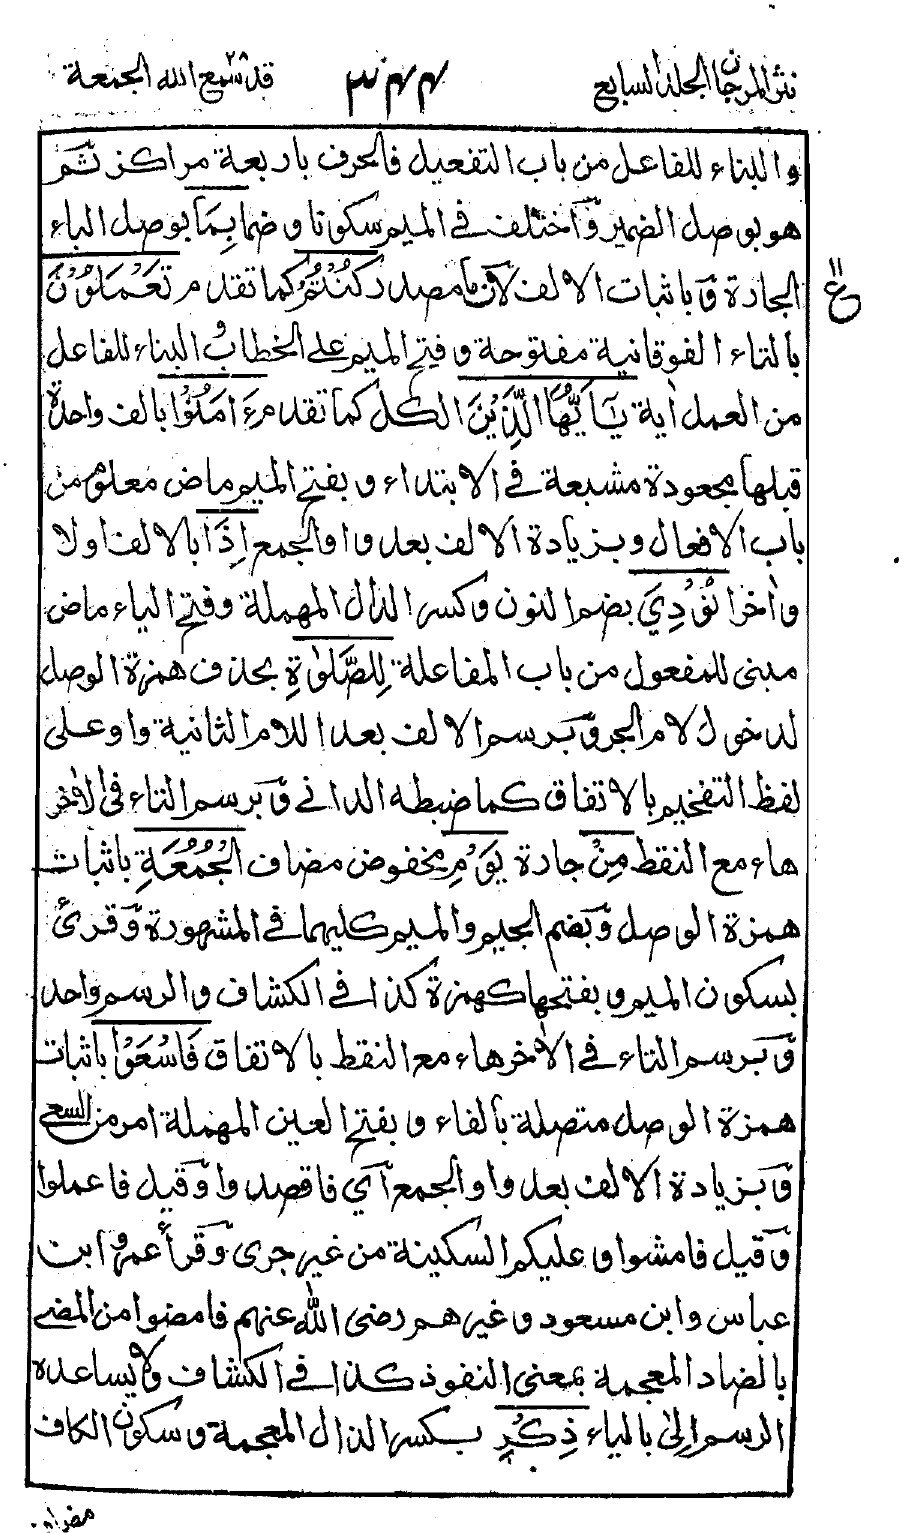 نثر المرجان الجلد السابع
٣٤٤
قد سمع الله ٢٨ الجمعة
والبناء للفاعل من باب التفعيل فالحرف باربعة مراكز ثم
هو بوصل الضمير وٓاختلف فے الميم سكونا و ضما بِمَا بوصل الباء
الجادة وٓباثبات الالف لان ما مصدر كُنْتُمْ كما تقدم تَعْمَلُوْنَ
بالتاء الفوقانية مفتوحة و فتح الميم على الخطاب و البناء للفاعل
من العمل اٰية يٰٓاَيُّهَا الَّذِيْنَ الكل كما تقدم ءَامَنُوْا بالف واحدة
قبلها مجعودة مشبعة فے الابتداء و بفتح الميم ماض معلوم من
باب الافعال و بزيادة الالف بعد واو الجمع اِذَا بالالف اولا
واٰخرا نُوْدِيَ بضم النون وكسر الدال المهملة وفتح الياء ماض
مبنى للمفعول من باب المفاعلة لِلصَّلٰوةِ بحذف همزة الوصل
لدخول لام الجر وٓبرسم الالف بعد اللام الثانية واو على
لفظ التفخيم بالاتفاق كما ضبطه الدانے وٓبرسم التاء فى الاٰخر
هاء مع النقط مِنْ جادة يَوْمِ مخفوض مضاف الْجُمُعَةِ باثبات
همزة الوصل وٓبضم الجيم والميم كليهما فے المشهورة وٓقرئ
بسكون الميم و بفتحها كهمزة كذا فے الكشاف والرسم واحد
وٓبرسم التاء فے الاٰخر هاء مع النقط بالاتفاق فَاسْعَوْا باثبات
همزة الوصل متصلة بالفاء و بفتح العين المهملة امر من السعے
وٓبزيادة الالف بعد واو الجمع اٰي فاقصدوا وٓقيل فاعملوا
وٓقيل فامشوا و عليكم السكينة من غير جرى وٓقرأ عمر و ابن
عباس وابن مسعود و غيرهم رضى الله عنهم فامضوا من المضے
بالضاد المعجمة بمعنى النفوذ كذا فے الكشاف ولا يساعده
الرسم اِلٰى بالياء ذِكْرِ بكسر الذال المعجمة و سكون الكاف
ع
مضاف